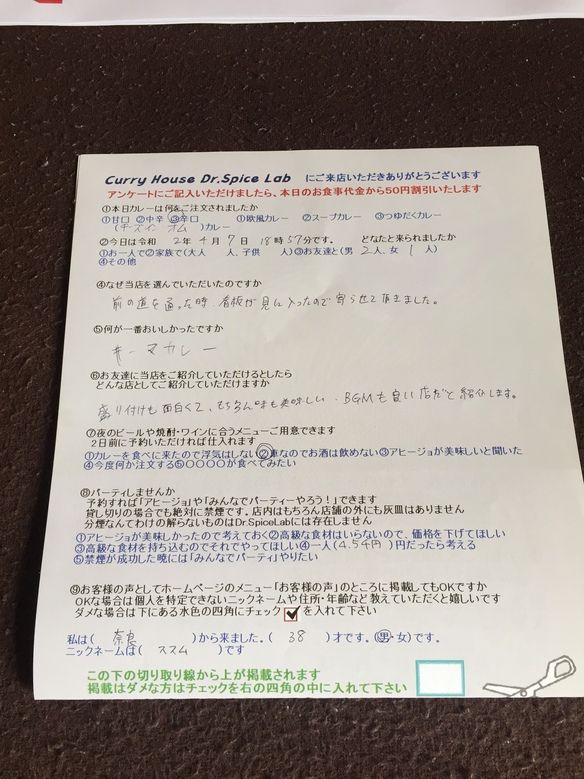 Curry House Dr.Spice Lab にご来店いただきありがとうございます
アンケートにご記入いただけましたら、本日のお食事代金から50円割引いたします
①本日カレーは何をご注文されましたか
①甘口 ②中辛 ③辛口 ①欧風カレー ②スープカレー ③つゆだくカレー
(チーズイン オム)カレー
②今日は令和 2年 4月 7日 18時 57分です。 どなたと来られましたか
①お一人で②家族で(大人 人、子供 人)③お友達と(男 2人、女 1 人)
④その他
④なぜ当店を選んでいただいたのですか
前の道を通った時、看板が見に入ったので寄らせて頂きました。
⑤何が一番おいしかったですか
キーマカレー
⑥お友達に当店をご紹介していただけるとしたら
どんな店としてご紹介していただけますか
盛り付けも面白くて、もちろん味も美味しい、BGMも良い店だと紹介します。
⑦夜のビールや焼酎・ワインに合うメニューご用意できます
2日前に予約いただければ仕入れます
①カレーを食べに来たので浮気はしない②車なのでお酒は飲めない③アヒージョが美味しいと聞いた
④今度何か注文する⑤〇〇〇〇が食べてみたい
⑧パーティしませんか
予約すれば「アヒージョ」や「みんなでパーティーやろう!」できます
貸し切りの場合でも絶対に禁煙です。店内はもちろん店舗の外にも灰皿はありません
分煙なんてわけの解らないものはDr.SpiceLabには存在しません
①アヒージョが美味しかったので考えておく②高級な食材はいらないので、価格を下げてほしい
③高級な食材を持ち込むのでそれでやってほしい④一人(4.5千円)円だったら考える
⑤禁煙が成功した暁には「みんなでパーティ」やりたい
⑨お客様の声としてホームページのメニュー「お客様の声」のところに掲載してもOKですか
OKな場合は個人を特定できないニックネームや住所・年齢など教えていただくと嬉しいです
ダメな場合は下にある水色の四角にチェック を入れて下さい
私は( 奈良 )から来ました。( 38 )才です。(男・女)です。
ニックネームは( ススム )です
この下の切り取り線から上が掲載されます
掲載はダメな方はチェックを右の四角の中に入れて下さい